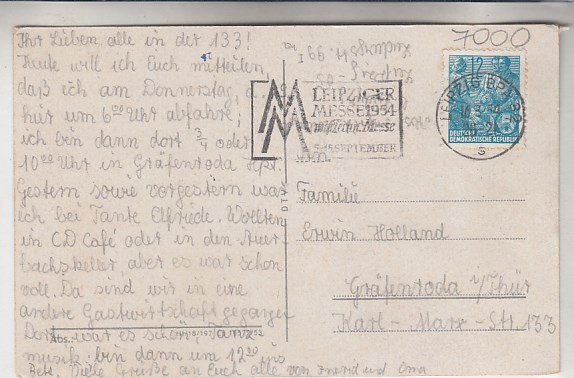 Ihr Lieben, alle in der 133!
Heute will ich Euch mitteilen,
daß ich am Donnerstag, d.
hier um 6 00 Uhr abfahre;
ich bin dann dort 3/4 oder
10 00 Uhr in Gräfenroda
Gestern sowie vorgestern war
ich bei Tante Elfriede. Wollten
in CD Café oder in den Auer-
bachskeller, aber es war schon
voll. Da sind wir in eine
andere Gastwirtschaft gegangen
Dort war es schön, Tanz
musik. bin dann um 12 00 ins
Bett. Viele Grüße an Euch alle von Ingrid und Oma
Abs.:
7000
LEIPZIGER
MESSE 1954
mit Techn. Messe
5.-15. SEPTEMBER
MM
LEIPZIG BPA 32
s
12
DEUTSCHE
DEMOKRATISCHE REPUBLIK
DTVK
Familie
Erwin Holland
Gräfenroda i/Thür
Karl-Marx-Str. 133